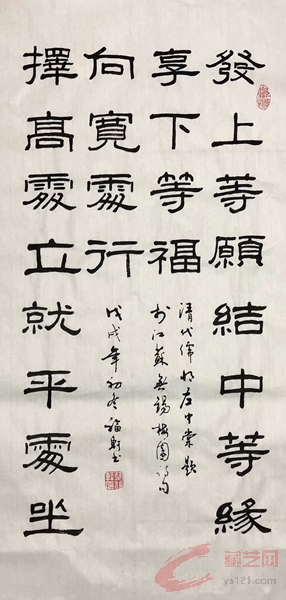 發上等願結中等緣
享下等福
擇高處立就平處坐
向寬處行
清代儒將左中棠題
於江蘇無錫梅園詩句
戊戌年初冬福書
藏艺网
ya121.com